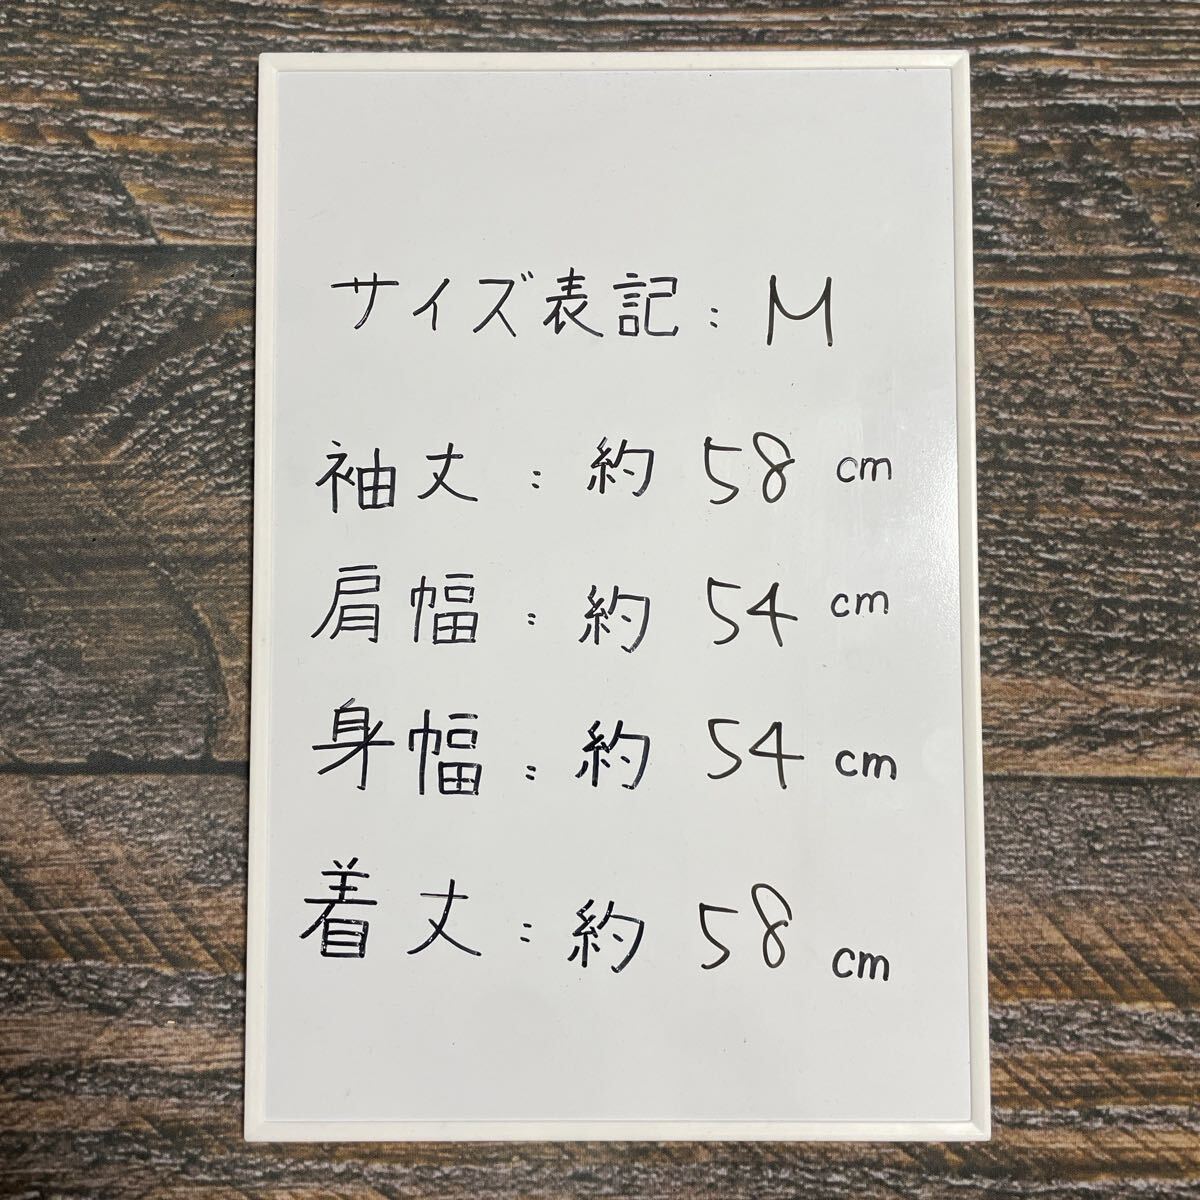 サイズ表記：M
袖丈：約 58 cm
肩幅：約 54 cm
身幅：約 54 cm
着丈：約 58 cm